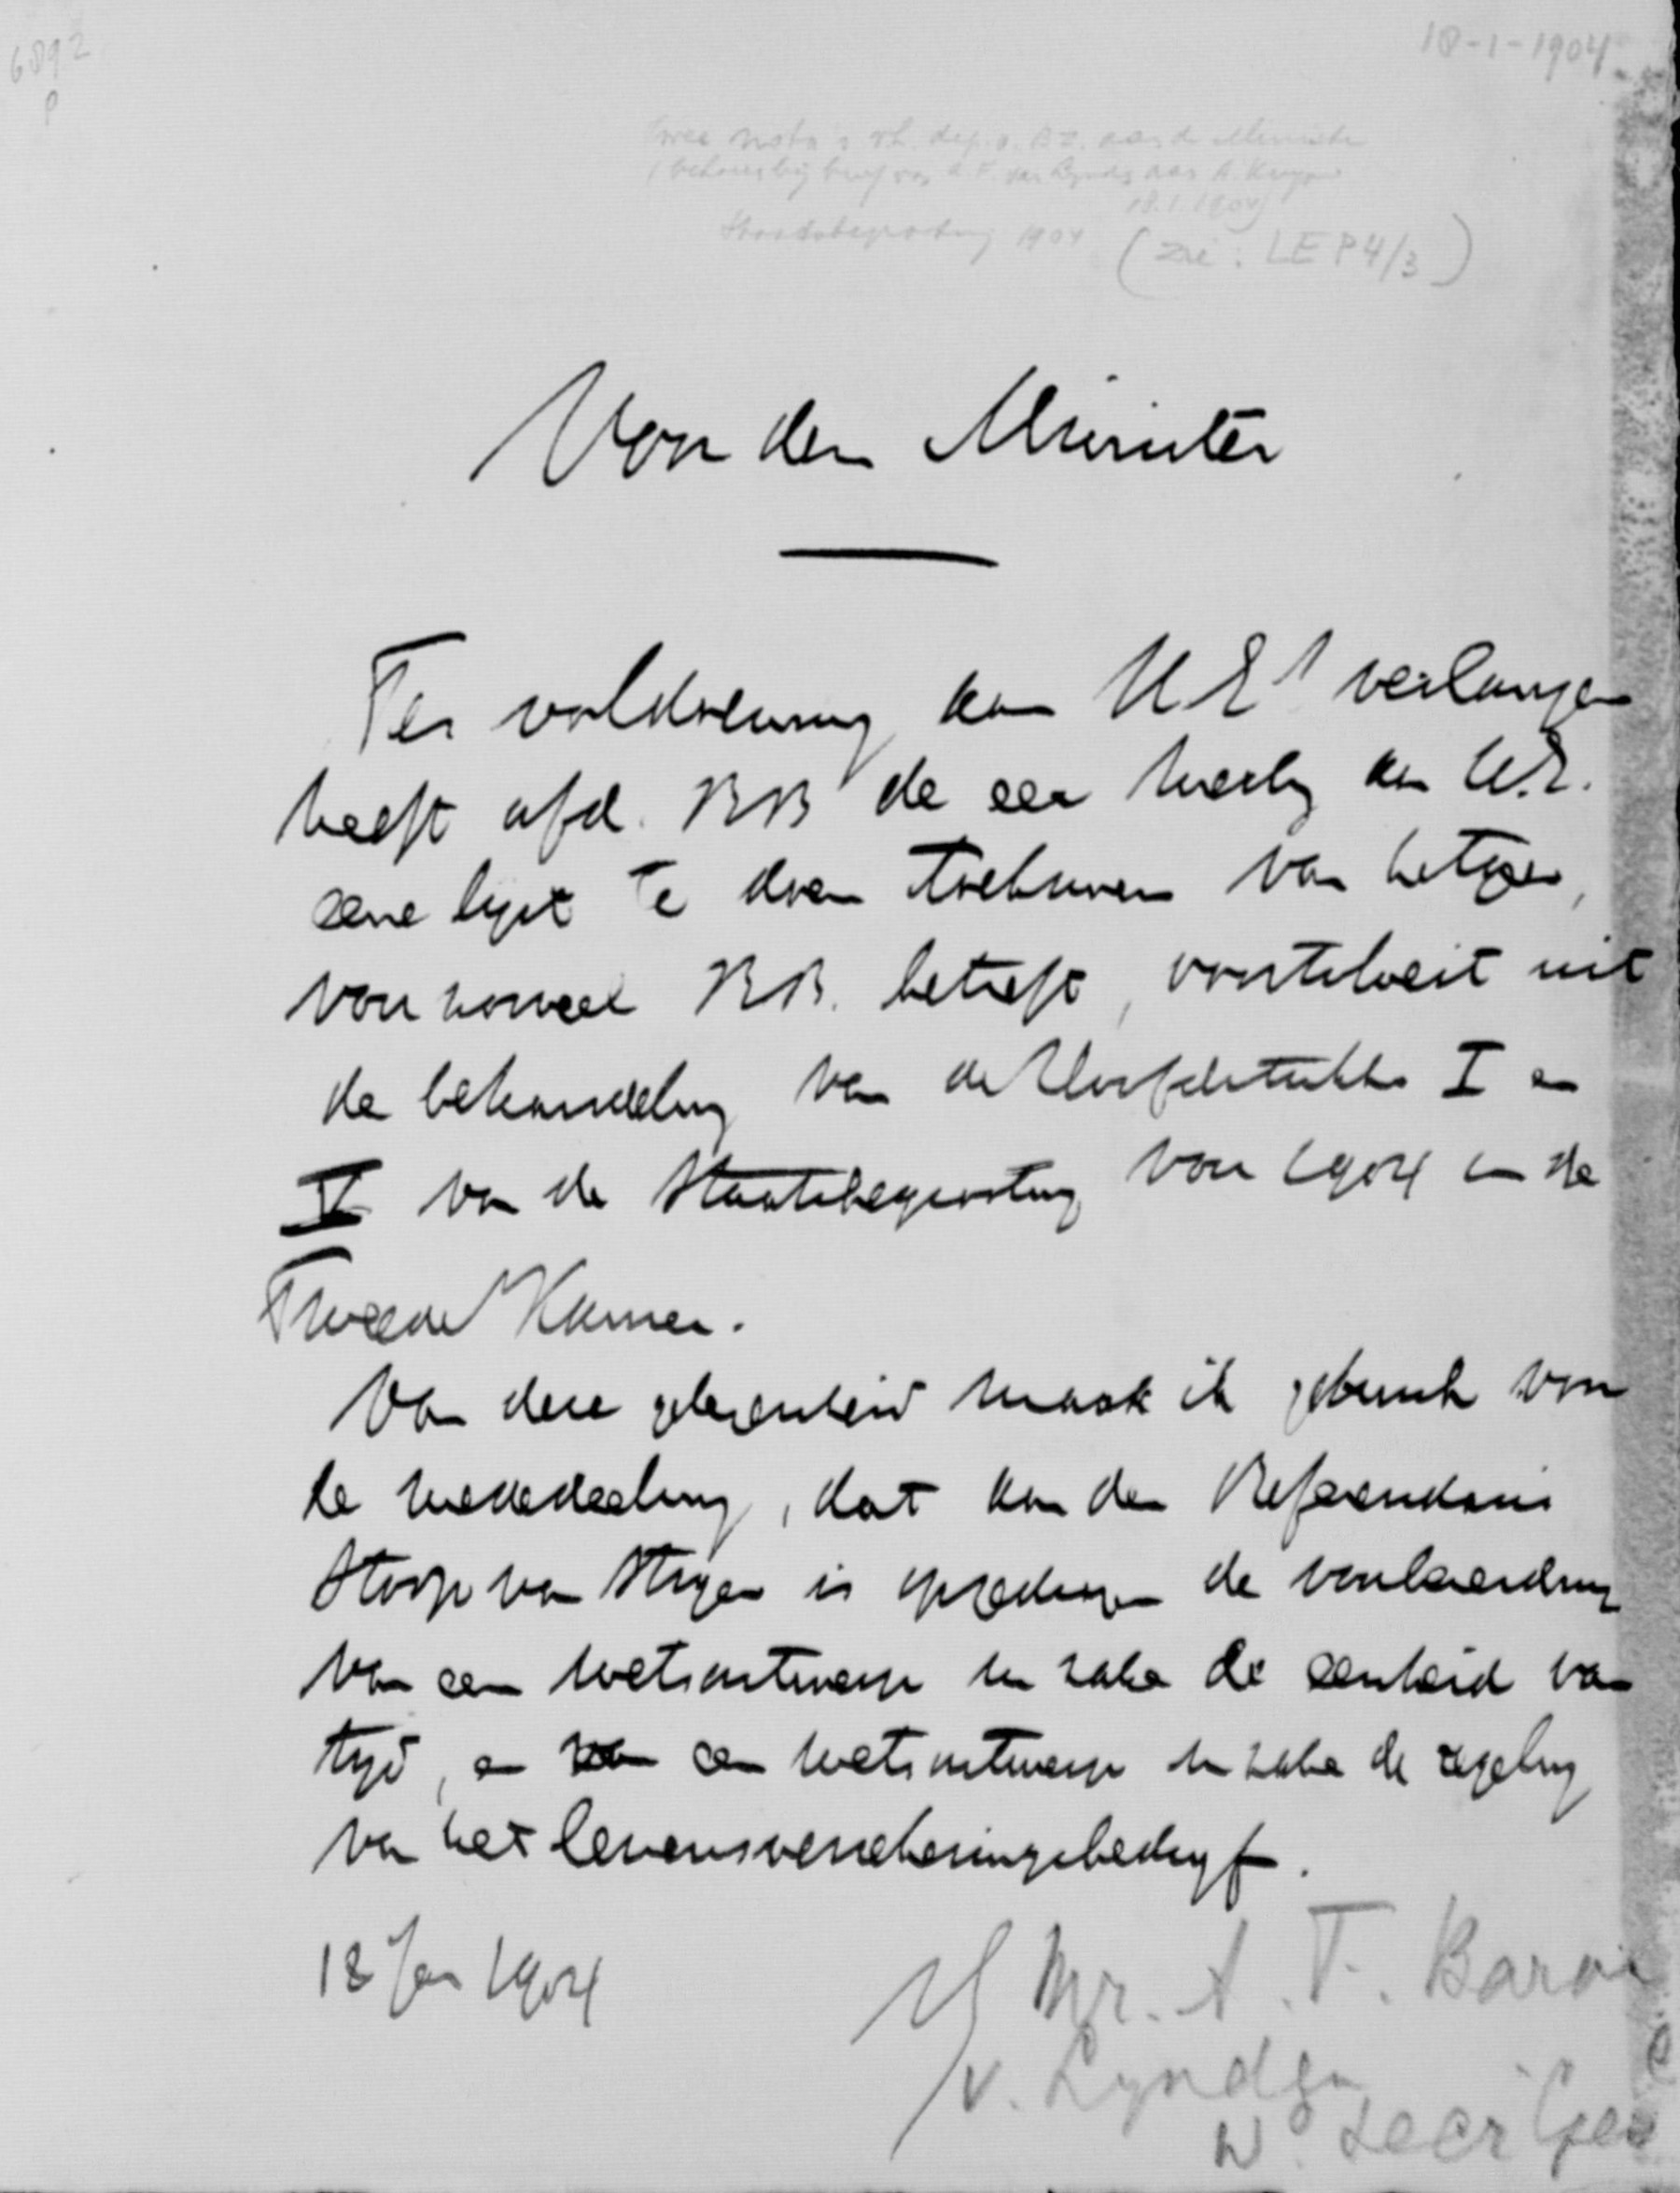 6892
P
18-1-1904
twee nota's v.h. dep. v. B.Z. aan de Minister
(behoort bij brief van A.F. van Lynden aan A. Kuyper
18.1.1904)
Staatsbegrooting 1904 (zie: LEP 4/3)
Voor den Minister
Ter voldoening aan U.E.'s verlangen
heeft afd. BB de eer hierbij aan U.E.
eene lijst te doen toekomen van hetgeen,
voor zooveel BB. betreft, voortvloeit uit
de behandeling van de Hoofdstukken I en
V van de Staatsbegrooting voor 1904 in de
Tweede Kamer.
Van deze gelegenheid maak ik gebruik voor
de mededeeling, dat aan den Referendaris
Stoop van Strijen is opgedragen de voorbereiding
van een wetsontwerp in zake de eenheid van
tijd, en van een wetsontwerp in zake de regeling
van het levensverzekeringsbedrijf.
18 Jan 1904
Mr. A. F. Baron
v. Lynden